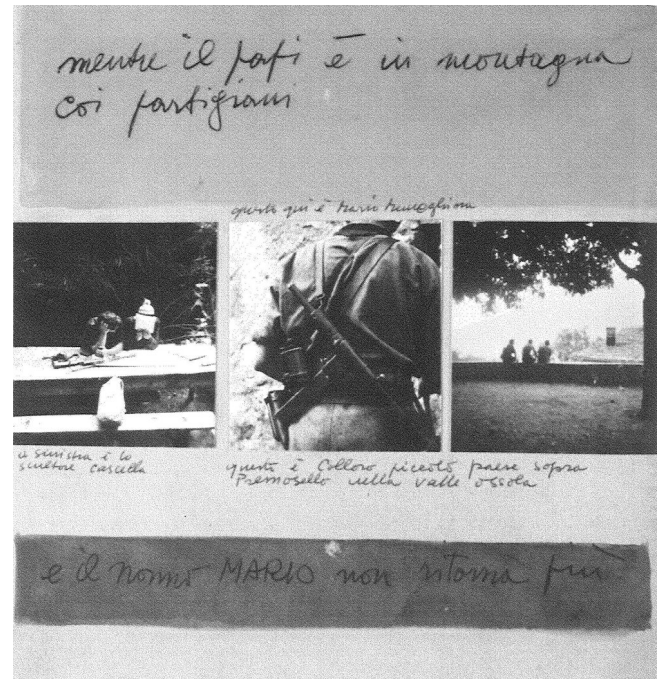 mentre il papi è in montagna
coi partigiani
questo qui è Mario
a sinistra è lo
scultore cascella
questo è Colloro, piccolo paese sopra
Premosello nella valle ossola
e il nonno MARIO non ritorna più